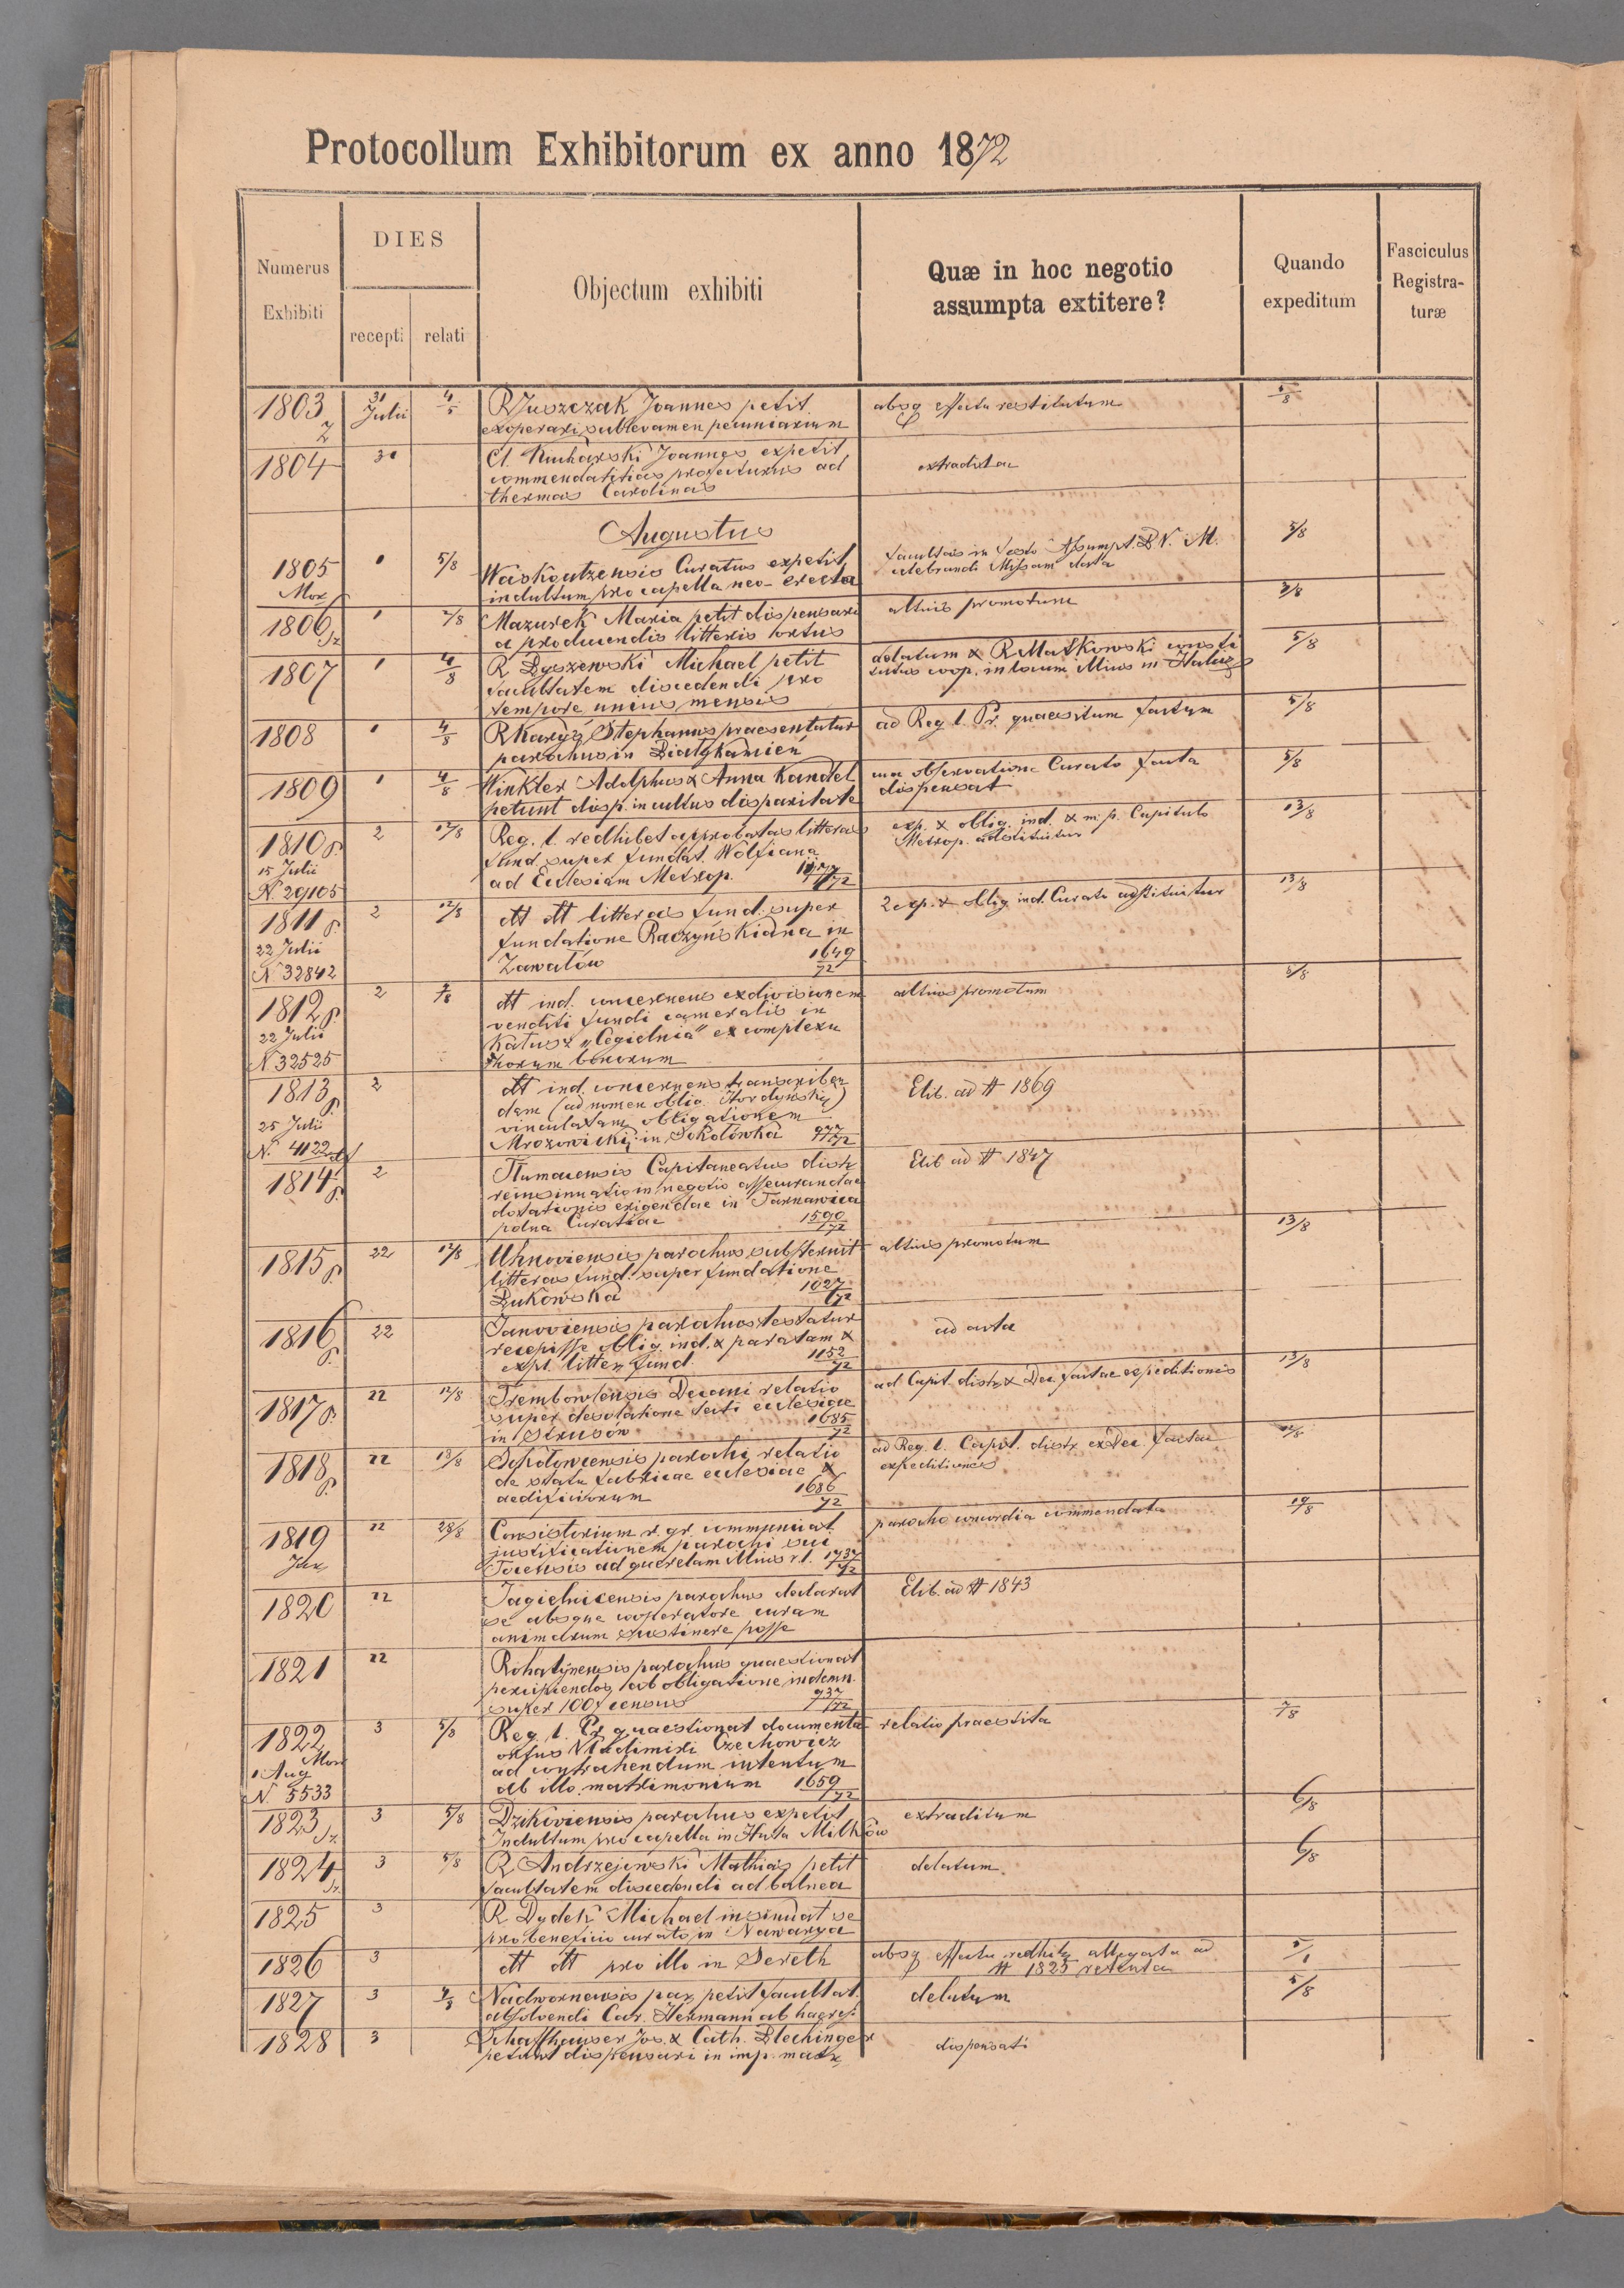 Protocollum Exhibitorum ex anno 1872
Numerus Exhibiti
DIES
recepti
relati
Objectum exhibiti
Quæ in hoc negotio assumpta extitere?
Quando expeditum
Fasciculus Registra-turæ
1803 31 Julii R Juszczak Joannes petit absq effectu restitutum
exoperari sublevamen pecuniarium
1804 31 Cl. Kucharski Joannes expetit extraditae
commendatitias profecturus ad
thermas Carolinas
Augustus
1805 1 5/8 Waskoutzensis Curatus expetit facultas in festo Assumpt. B V. M. 5/8
indultum pro capella neo-erecta celebrandi Missam data
1806 1 2/8 Mazurek Maria petit dispensari altius promotum 3/8
a producendis litteris ortus
1807 1 4/8 R Łyszewski Michael petit delatum & R Matkowski consti 5/8
facultatem discedendi pro tutus coop. in locum illius in
tempore unius mensis
1808 1 4/8 R Karyż Stephanus praesentatur ad Reg t. Pr. quaesitum factum 5/8
parochus in Białykamień
1809 1 4/8 Winkler Adolphus & Anna Kandel una observatione Curato facta 5/8
petunt disp. in cultus disparitate dispensat
1810 2 12/8 Reg. t. redhibet approbatas litteras exp. & oblig. ind. & m. p. Capitulo 13/8
15 Julii fund. super fundat. Wolfiana Metrop. adstituitur
N. 29105 ad Ecclesiam Metrop.
1811 2 12/8 dtt dtt litteras fund. super 2 exp. & oblig ind. Curato adstituitur 13/8
22 Julii fundatione Raczyńskiana in
N 32842 Zawałów 1649/72
1812 2 dtt ind. concernens exdivisionem altius promotum 5/8
22 Julii venditi fundi cameralis in
N 32525 Kałusz "Cegielnia" ex complexu
horum bonorum
1813 2 dtt ind. concernens transcriben Elib. ad # 1869
25 Julii dam (ad nomen oblig. Hordyńskij)
vinculatam obligationem
N. 4122 Mrozowickij in Sokołówka 977/72
1814 2 Tłumacensis Capitaneatus distr Elib ad # 1847
reinsinuatio in negotio assecurandae
dotationis exigendae in Tarnawica
polna Curatiae 1590/72
1815 22 12/8 Uhnoviensis parochus substernit altius promotum 13/8
litteras fund. super fundatione
Łukowska 1027/72
1816 22 Janoviensis parochus testatur ad acta
recepisse oblig. ind. & paratam &
expl. litter fund. 1152/72
1817 22 12/8 Trembowlensis Decani relatio ad Capit. distr & Dec. factae expeditiones 13/8
super desolatione tecti ecclesiae
in Strusów 1685/72
1818 22 13/8 Sokołowcensis parochi relatio ad Reg. t. Capit. distr et Dec. factae
de statu fabricae ecclesiae & expeditiones
aedificiorum 1686/72
1819 22 28/8 Consistorium r. gr. communicat parocho concordia commendata 19/8
justificationem parochi sui
ad querelam illius r. l. 1737/72
1820 22 Jagielnicensis parochus declarat Elib. ad # 1843
se absque cooperatore curam
animarum sustinere posse
1821 22 Rohatynensis parochus quaestionat
percipiendos ab obligatione indemn.
super 100 f census 937/72
1822 3 5/8 Reg. t. Pr quaestionat documenta relatio praestita 7/8
ortus Vladimiri Czechowicz
1 Aug ad contrahendum intentum
N. 5533 ab illo matrimonium 1659/72
1823 3 5/8 Dzikoviensis parochus expetit extraditum 6/8
Indultum pro capella in Huta Milków
1824 3 5/8 R Andrzejewski Mathias petit delatum 6/8
facultatem discedendi ad balnea
1825 3 R Dydek Michael insinuat se
pro beneficio curato in Nawarya
1826 3 dtt dtt pro illo in Sereth absq effectu redhib allegata ad
# 1825 retenta
1827 3 4/8 Nadwornensis par petit facultat. delatum 5/8
absolvendi Car. Hermann ab haeresi
1828 3 Schaffhauser Jos. & Cath. Blechinger dispensati
petunt dispensari in imp. matr